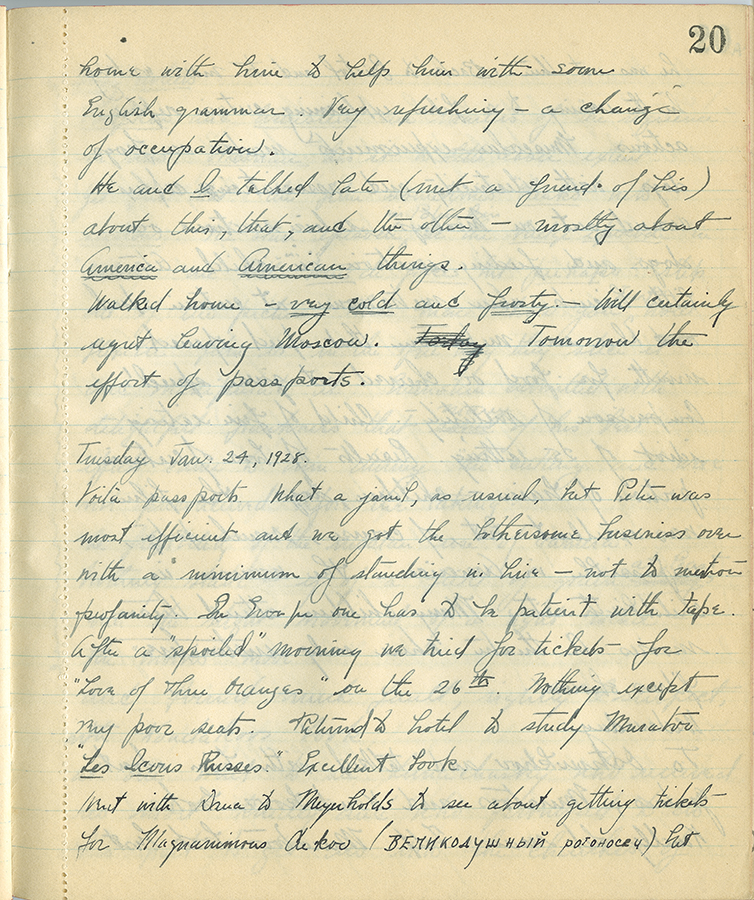 20
home with him to help him with some
English grammar. Very refreshing – a change
of occupation.
He and I talked late (met a friend of his)
about this, that, and the other – mostly about
America and American things.
Walked home – very cold and frosty. – Will certainly
regret leaving Moscow. Today Tomorrow the
effort of passports.
Tuesday Jan. 24, 1928.
Voilà passports. What a jam, as usual, but Petra was
most efficient and we got the bothersome business over
with a minimum of standing in line – not to mention
profanity. In Europe one has to be patient with tape.
After a "spoiled" morning we tried for tickets for
"Love of Three Oranges" on the 26th. Nothing except
very poor seats. Returned to hotel to study Muratov
"Les Icons Russes." Excellent book.
Went with to Meyerholds to see about getting tickets
for Magnanimous Cuckoo (ВЕЛИКОДУШНЫЙ рогоносец) but